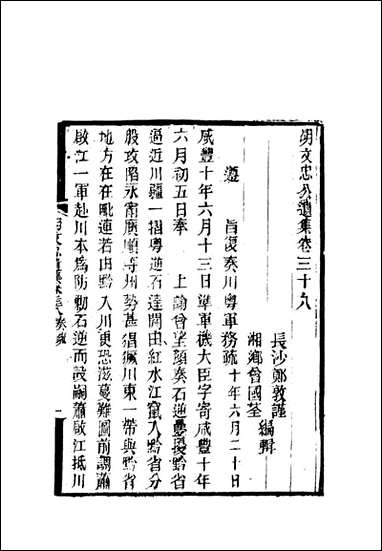 胡文忠公遺集卷三十八
長沙鄭敦謹
湘鄉曾國荃編輯
遵旨復奏川粵軍務疏十年六月二十日
咸豐十年六月十三日準軍機大臣字寄咸豐十年
六月初五日奉上諭曾望顏奏石逆疊擾黔省
逼近川疆一摺粵逆石達開由紅水江竄入黔省分
股攻陷永甯廣順等州勢甚猖獗川東一帶與黔省
地方在在毗連若由黔入川更恐滋蔓難圖前調蕭
啟江一軍赴川本為防勦石逆而設嗣蕭啟江抵川
胡文忠公遺集卷三十八奏疏
一